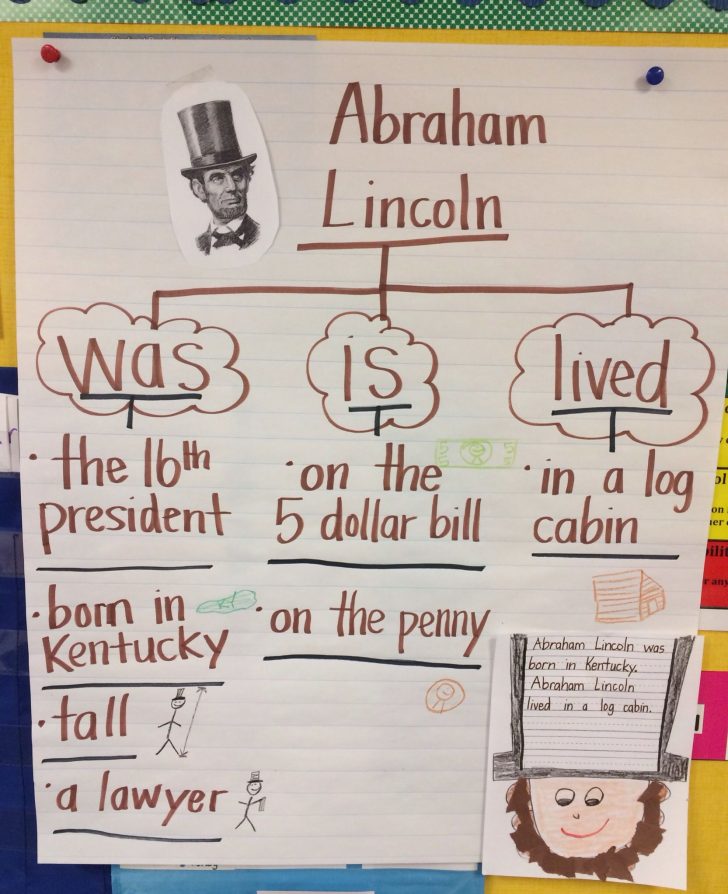 Abraham
Lincoln
was
is
lived
· the 16th
president
· born in
Kentucky
· tall
· a lawyer
· on the
5 dollar bill
· on the penny
· in a log
cabin
Abraham Lincoln was
born in Kentucky.
Abraham Lincoln
lived in a log cabin.